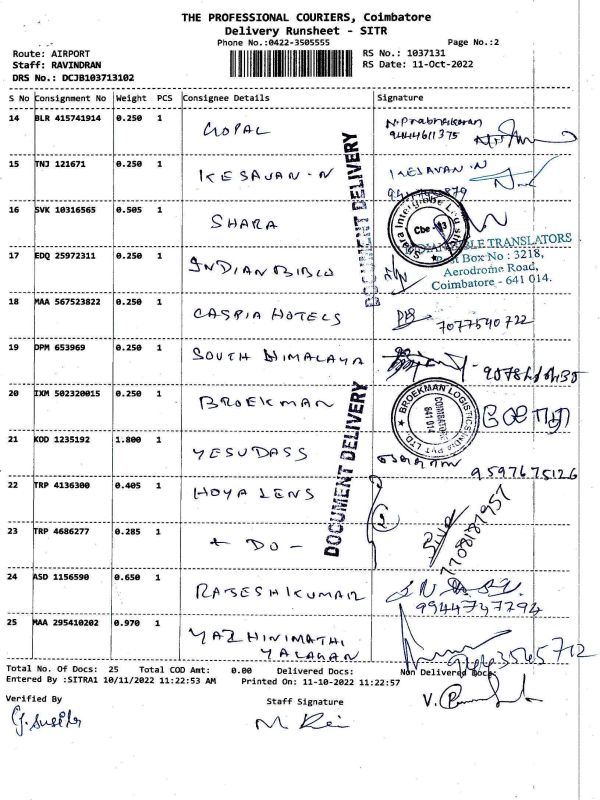 THE PROFESSIONAL COURIERS, Coimbatore
Delivery Runsheet - SITR
Phone No.:0422-3505555
Page No.:2
Route: AIRPORT
RS No.: 1037131
Staff: RAVINDRAN
RS Date: 11-Oct-2022
DRS No.: DCJB103713102
S No Consignment No Weight PCS Consignee Details Signature
14 BLR 415741914 0.250 1 GOPAL N.Prabhakaran
9444611375
15 TNJ 121671 0.250 1 KESAVAN-N KESAVAN.N
16 SVK 10316565 0.505 1 SHARA
Shara Interglobe Logistic
Cbe
17 EDQ 25972311 0.250 1 INDIAN BIBLE
INDIAN BIBLE TRANSLATORS
Post Box No : 3218,
Aerodrome Road,
Coimbatore - 641 014.
18 MAA 567523822 0.250 1 CASPIA HOTELS 7077540722
19 DPM 653969 0.250 1 SOUTH HIMALAYA
20 IXM 502320015 0.250 1 BROEKMAN
BROEKMAN LOGISTICS INDIA PVT LTD
COIMBATORE
641 014
21 KOD 1235192 1.800 1 YESUDASS
9597675126
22 TRP 4136300 0.405 1 HOYA LENS
23 TRP 4686277 0.285 1 - DO - Siva
7708187957
24 ASD 1156590 0.650 1 RAJESHKUMAR
9944747294
25 MAA 295410202 0.970 1 YAZHINIMATHI
YALAGAN
9443565712
DOCUMENT DELIVERY
DOCUMENT DELIVERY
Total No. Of Docs: 25 Total COD Amt: 0.00 Delivered Docs: Non Delivered Docs:
Entered By :SITRA1 10/11/2022 11:22:53 AM Printed On: 11-10-2022 11:22:57
Verified By
Staff Signature